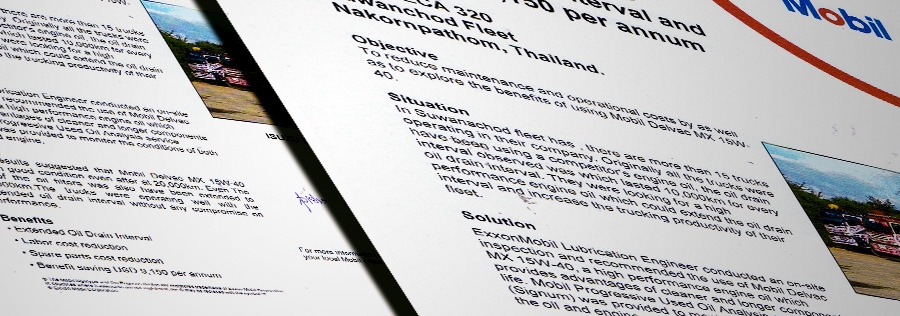 there are, more than 15 trucks
Originally all the trucks were
engine oil, the oil drain
which lasted 10,000km for every
were looking for a high
oil which could extend the oil drain
the trucking productivity of their
rication Engineer conducted an on-site
recommended the use of Mobil Delvac
high performance engine oil which
of cleaner and longer engine
rogressive Used Oil Analysis service
was provided to monitor the conditions of both
esults suggested that Mobil Delvac MX 15W-40
good condition even after at 20,000km. Even the
The truck was also have been extended to
oil filters was operating well with the
oil drain interval without any compromise on
Benefits
• Extended Oil Drain Interval
• Labor cost reduction
• Spare parts cost reduction
• Benefit saving USD 3,150 per annum
For more information
your local Mobil
interval and
,150 per annum
ECA 320
uwanchod Fleet
Nakornpathom, Thailand.
Mobil
Objective
To reduce maintenance and operational costs by as well
as to explore the benefits of using Mobil Delvac MX 15W-
40.
Situation
In Suwanachod fleet has , there are more than 15 trucks
operating in their company. Originally all the trucks were
have been using a competitor's engine oil, the oil drain
interval observed was which lasted 10,000km for every
oil drain interval. They were looking for a high
performance engine oil which could extend the oil drain
interval and increase the trucking productivity of their
fleet.
Solution
ExxonMobil Lubrication Engineer conducted an on-site
inspection and recommended the use of Mobil Delvac
MX 15W-40, a high performance engine oil which
provides advantages of cleaner and longer
life. Mobil Progressive Used Oil Analysis
(Signum) was provided to
the oil and engine